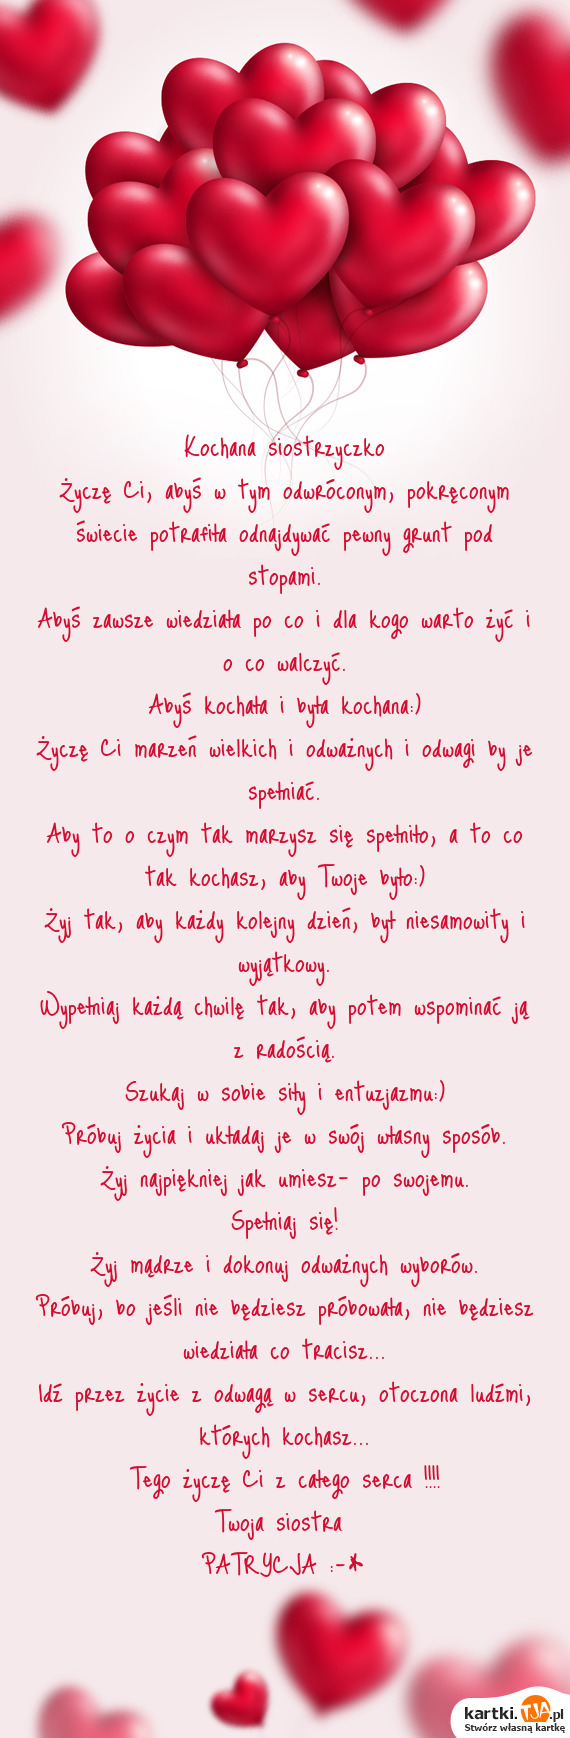 Kochana siostrzyczko
Życzę Ci, abyś w tym odwróconym, pokręconym
świecie potrafiła odnajdywać pewny grunt pod
stopami.
Abyś zawsze wiedziała po co i dla kogo warto żyć i
o co walczyć.
Abyś kochała i była kochana:)
Życzę Ci marzeń wielkich i odważnych i odwagi by je
spełniać.
Aby to o czym tak marzysz się spełniło, a to co
tak kochasz, aby Twoje było:)
Żyj tak, aby każdy kolejny dzień, był niesamowity i
wyjątkowy.
Wypełniaj każdą chwilę tak, aby potem wspominać ją
z radością.
Szukaj w sobie siły i entuzjazmu:)
Próbuj życia i układaj je w swój własny sposób.
Żyj najpiękniej jak umiesz- po swojemu.
Spełniaj się!
Żyj mądrze i dokonuj odważnych wyborów.
Próbuj, bo jeśli nie będziesz próbowała, nie będziesz
wiedziała co tracisz...
Idź przez życie z odwagą w sercu, otoczona ludźmi,
których kochasz...
Tego życzę Ci z całego serca !!!!
Twoja siostra
PATRYCJA :-*
kartki.TJA.pl
Stwórz własną kartkę